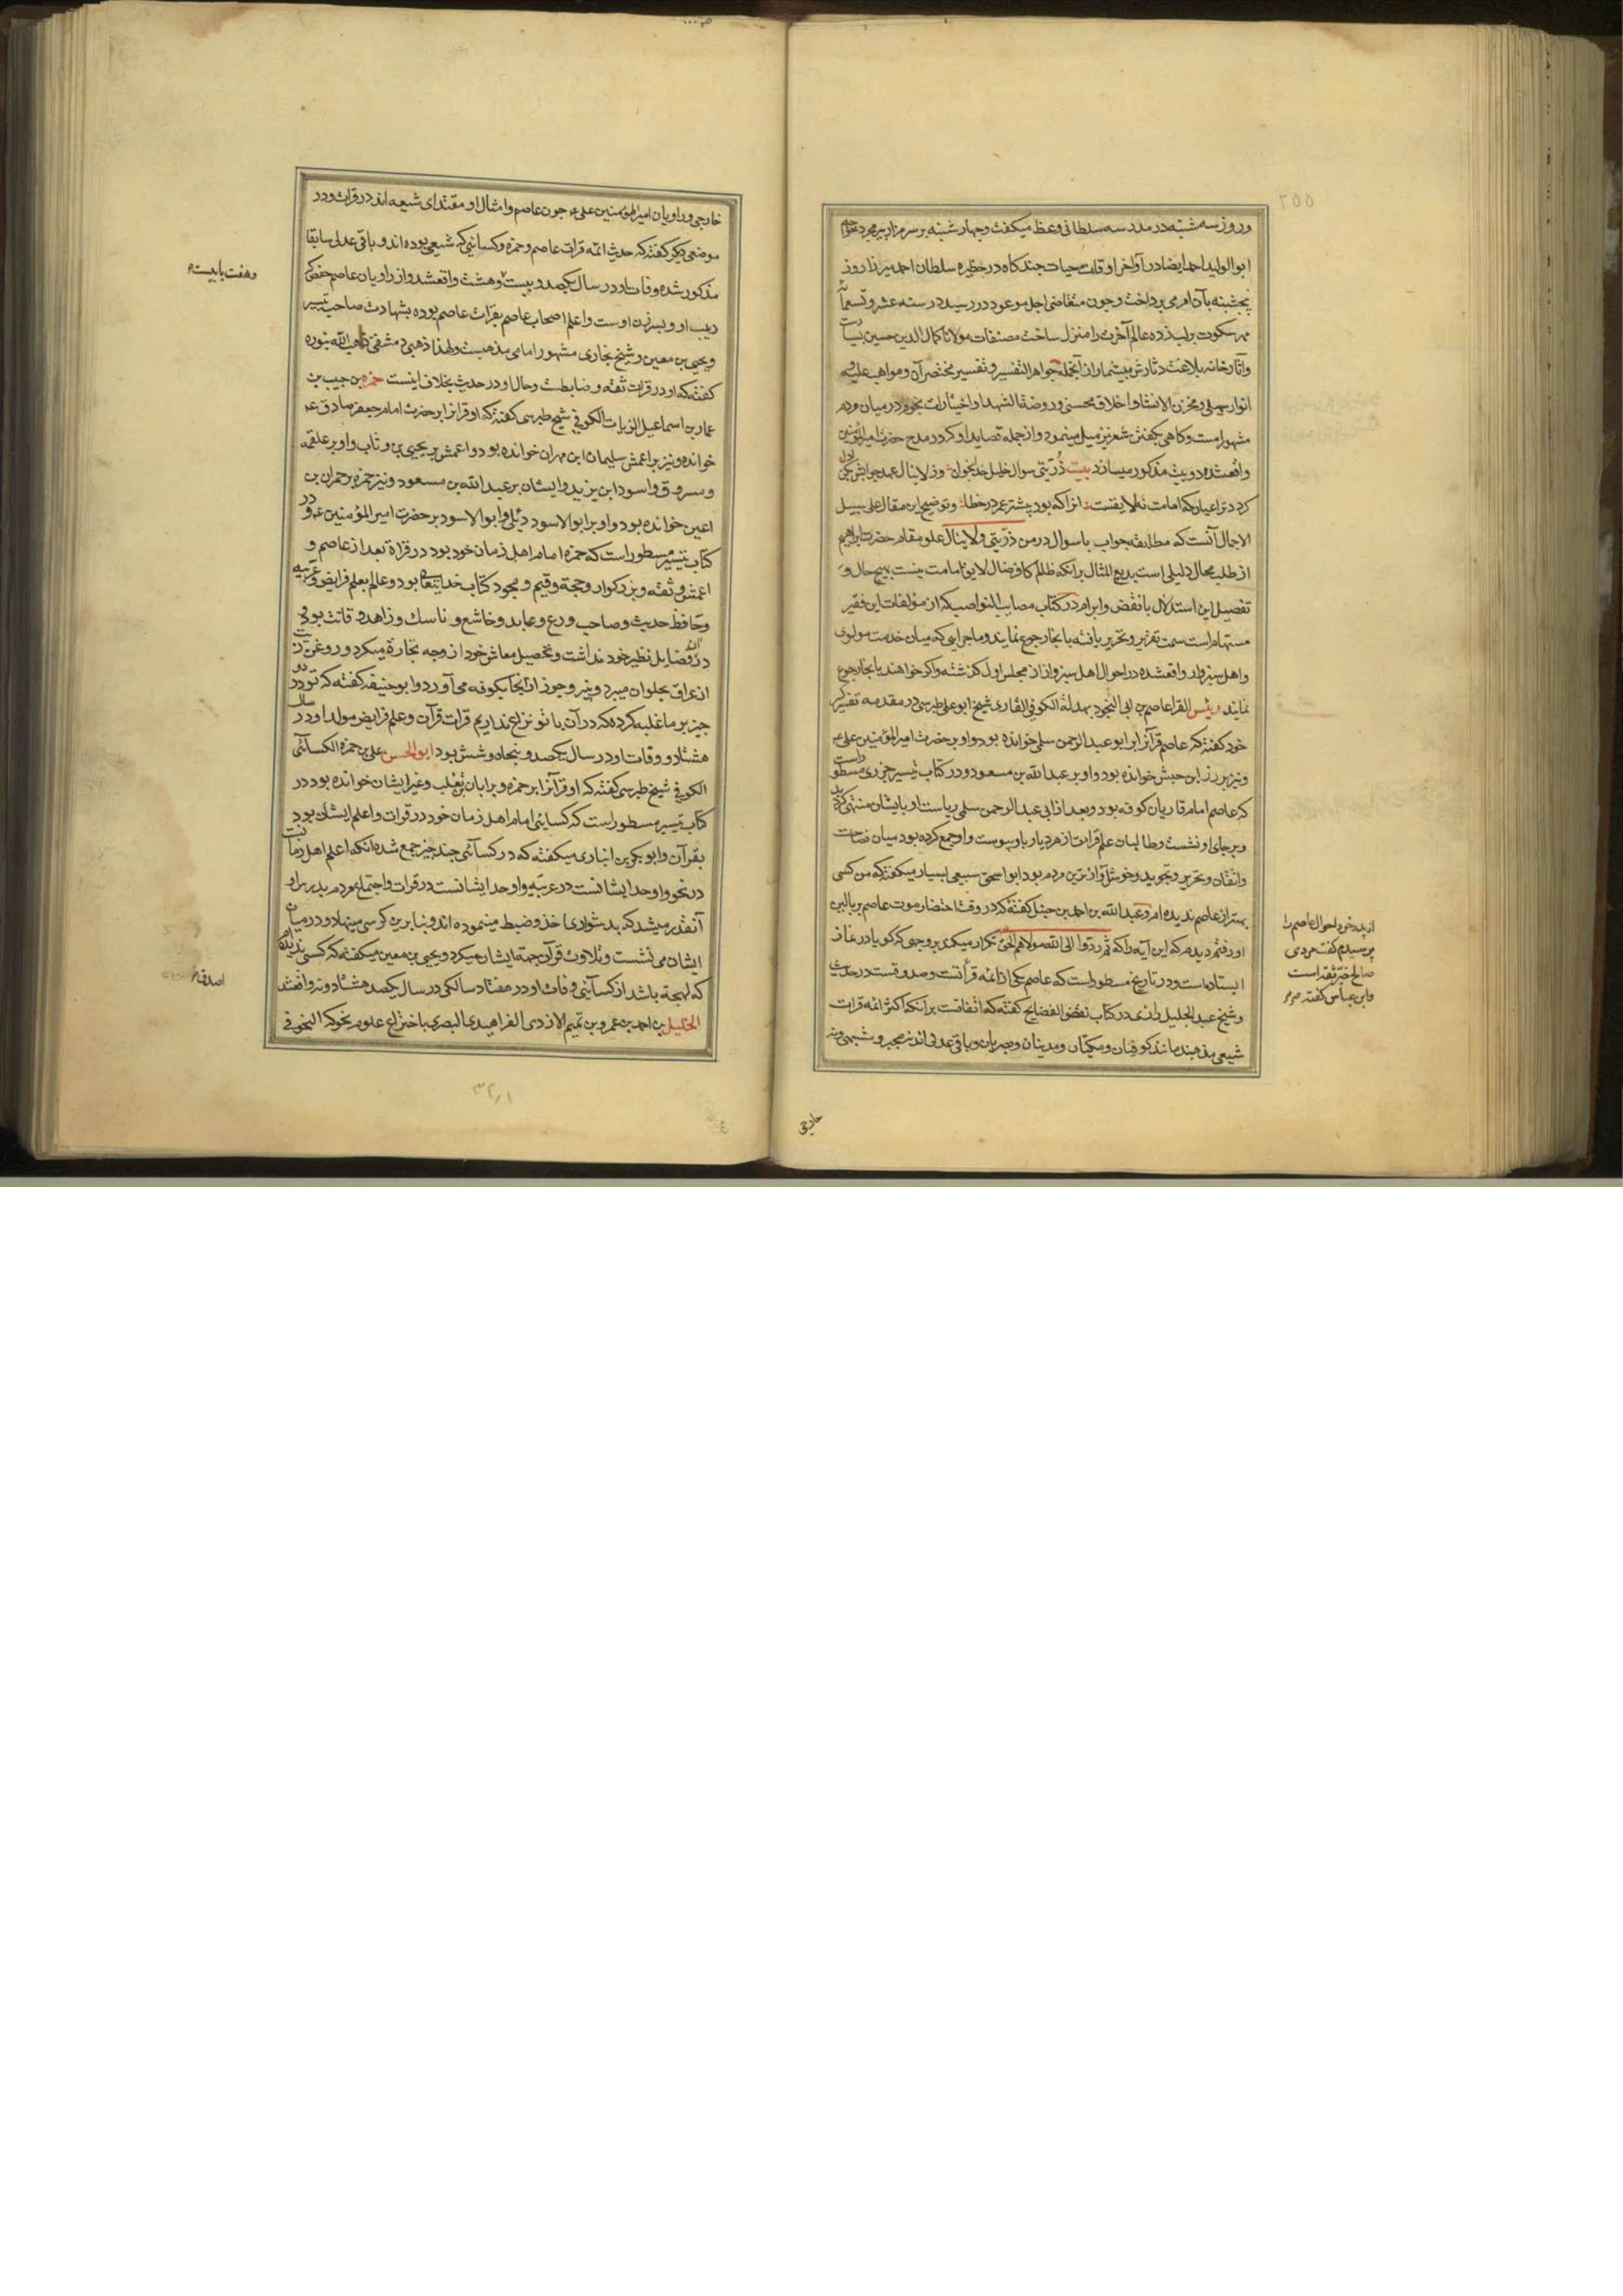 وروز سه شنبه در مدرسه سلطانی وعظ میکفت وچهار شنبه بر سر مزار پیر مجرد خواجه
ابو الولید احمد ایضا در آواخر اوقات حیات چند کاه در حظیره سلطان احمد میرزا روز
پنجشنبه بآن امر می پرداخت وچون متقاضی اجل موعود در رسید در سنه عشر وتسعمائه
مهر سکوت بر لب زده عالم آخرت را منزل ساخت مصنفات مولانا کمال الدین حسین بسیارست
وآثار خامه بلاغت دثارش بیشمار از آنجمله جواهر التفسیر وتفسیر مختصر آن ومواهب علیه و
انوار سهیلی ومخزن الانشا واخلاق محسنی وروضة الشهدا واختیارات نجوم در میان مردم
مشهور است وکاهی بکفتن شعر نیز میل مینمود واز جمله قصاید او که در مدح حضرت امیر المؤمنین
واقعشده دو بیت مذکور میسازد بیت ذریتی سوال خلیل خدا بخوان وز لا ینال عهد جوابش بکن ادا
کردد ترا عیان که امامت نه لایقست انرا که بود بیشتر عمر در خطا وتوضیح این مقال علی سبیل
الاجمال آنست که مطابقه جواب باسوال در من ذریتی ولا ینال علو مقام حضرت ابراهیم
از طلب محال دلیلی است بدیع المثال برآنکه ظلم کافر ضال لایق امامت نیست بهیچ حال و
تفصیل این استدلال بانقض وابرام در کتاب مصایب النواصب که از مؤلفات این فقیر
مستهام است سمت تقریر وتحریر یافته بانجا رجوع نمایند وماجرایی که میان خدمت مولوی
واهل سبزوار واقعشده در احوال اهل سبزوار از مجلس اول کذشته واکر خواهند بانجا رجوع
نمایند رئیس القرا عاصم بن ابی النجود بهدلة الکوفی القاری شیخ ابو علی طبرسی در مقدمه تفسیر
خود کفته که عاصم قرآنرا بر ابو عبد الرحمن سلمی خوانده بود واو بر حضرت امیر المؤمنین علی ع
ونیز بر زر ابن حبیش خوانده بود واو بر عبد الله بن مسعود ودر کتاب تیسیر جزری مسطور است
که عاصم امام قاریان کوفه بود وبعد از ابی عبد الرحمن سلمی ریاست او بایشان منتهی کردید
وبر جای او نشست وطالبان علم قرائت از هر دیار باو پیوست واو جمع کرده بود میان فصاحت
واتقان وتحریر وتجوید وخوش آواز ترین مردم بود ابو اسحق سبیعی بسیار میکفته که من کسی
بهتر از عاصم ندیده ام وعبد الله بن احمد بن حنبل کفته که در وقت احتضار موت عاصم ببالین
او رفتم دیدم که این آیه را که ثم ردّوا الی الله مولاهم الحق تکرار میکند بر وجهی که کویا در نماز
ایستاده است ودر تاریخ مسطور است که عاصم یکی از ائمه قرائتست وصدوقست در حدیث
وشیخ عبد الجلیل رازی در کتاب نقض الفضایح کفته که اتفاقست برآنکه اکثر ائمه قرات
شیعی مذهبند مانند کوفیان ومکیان ومدنیان وبصریان وباقی عدلی اند نه مجبر ومشبهی ونه
از پدر خود احوال عاصم را
پرسیدم گفت مردی
صالح خیر ثقه است
وابن عباس کفته
خارجی
خارجی وراویان امیر المؤمنین علی ع چون عاصم وامثال او مقتدای شیعه اند در قرات ودر
موضعی دیکر کفته که حدیث ائمه قرات عاصم وحمزه وکسائی که شیعی بوده اند وباقی عدلی سابقا
مذکور شده وفات او در سال یکصد وبیست وهشت واقعشد واز راویان عاصم حفص که
ربیب او وپسر زن اوست واعلم اصحاب عاصم بقرات عاصم بوده بشهادت صاحب تیسیر
ویحیی بن معین وشیخ بخاری مشهور امامی مذهبست ولهذا ذهبی دمشقی ذهب الله بنوره
کفته که او در قرات ثقه وضابطست وحال او در حدیث بخلاف اینست حمزه بن حبیب بن
عمار بن اسماعیل الزیات الکوفی شیخ طبرسی کفته که او قرآنرا بر حضرت امام جعفر صادق ع
خوانده ونیز بر اعمش سلیمان ابن مهران خوانده بود واعمش بر یحیی بن وثاب واو بر علقمه
ومسروق واسود ابن یزید وایشان بر عبد الله بن مسعود ونیز حمزه بر حمران بن
اعین خوانده بود واو بر ابو الاسود دئلی وابو الاسود بر حضرت امیر المؤمنین ع ودر
کتاب تیسیر مسطور است که حمزه امام اهل زمان خود بود در قراة بعد از عاصم و
اعمش وثقه وبزرکوار وحجة وقیم ومجود کتاب خدایتعالی بود وعالم بعلم فرایض وعربیه
وحافظ حدیث وصاحب ورع وعابد وخاشع وناسک وزاهد وقانت بود
در فضایل نظیر خود نداشت وتحصیل معاش خود از وجه تجارة میکرد وروغن زیت
از عراق بحلوان میبرد وپنیر وجوز از آنجا بکوفه می آورد وابو حنیفه کفته که تو در دو
چیز بر ما غلبه کرده که در آن با تو نزاع نداریم قرات قرآن وعلم فرایض مولد او در سال
هشتاد ووفات او در سال یکصد وپنجاه وشش بود ابو الحسن علی بن حمزه الکسائی
الکوفی شیخ طبرسی کفته که او قرآنرا بر حمزه وبر ابان بن تغلب وغیر ایشان خوانده بود در
کتاب تیسیر مسطور است که کسائی امام اهل زمان خود در قرات واعلم ایشان بود
بقرآن وابو بکر بن انباری میکفته که در کسائی چند چیز جمع شده آنکه اعلم اهل زمانست
در نحو واوحد ایشانست در عربیه واوحد ایشانست در قرات واجتماع مردم بدر سرای او
آنقدر میشد که بدشواری اخذ وضبط مینموده اند وبنا برین کرسی مینهاد ودر میان
ایشان می نشست وتلاوت قرآن جهة ایشان میکرد ویحیی بن معین میکفته که کسی ندیده ام
که لهجه باشد از کسائی وفات او در هفتاد سالکی در سال یکصد هشتاد ونه واقعشد
الخلیل بن احمد بن عمرو بن تمیم الازدی الفراهیدی البصری باختراع علوم نحو که النحو فی
وهفت یا بیست
اصدق
٢٥٥